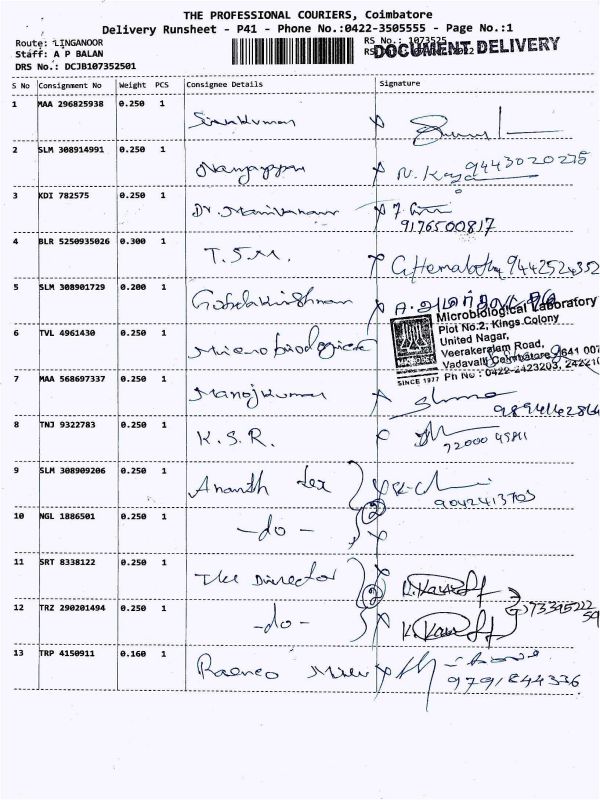 THE PROFESSIONAL COURIERS, Coimbatore
Delivery Runsheet - P41 - Phone No.:0422-3505555 - Page No.:1
Route: LINGANOOR
RS No.: 1073525
Staff: A P BALAN
DOCUMENT DELIVERY
DRS No.: DCJB107352501
S No Consignment No Weight PCS Consignee Details Signature
1 MAA 296825938 0.250 1 Sivakumar
2 SLM 308914991 0.250 1 Nanjappan 9443020275
3 KDI 782575 0.250 1 Dr. Manivannan
9176500817
4 BLR 5250935026 0.300 1 T.S.M. G Hemalatha 9442524352
5 SLM 308901729 0.200 1 Gopalakrishnan
Microbiological Laboratory
Plot No.2, Kings Colony
United Nagar,
Veerakeralam Road,
Vadavalli Coimbatore 641 007
Ph No : 0422-2423203,
SINCE 1977
6 TVL 4961430 0.250 1 Microbiological
7 MAA 568697337 0.250 1 Manojkumar
8 TNJ 9322783 0.250 1 K.S.R.
72000 45811
9 SLM 308909206 0.250 1 Ananth Tex
9042413703
2
10 NGL 1886501 0.250 1 -do-
11 SRT 8338122 0.250 1 The Director
2
12 TRZ 290201494 0.250 1 -do-
13 TRP 4150911 0.160 1
9791844336